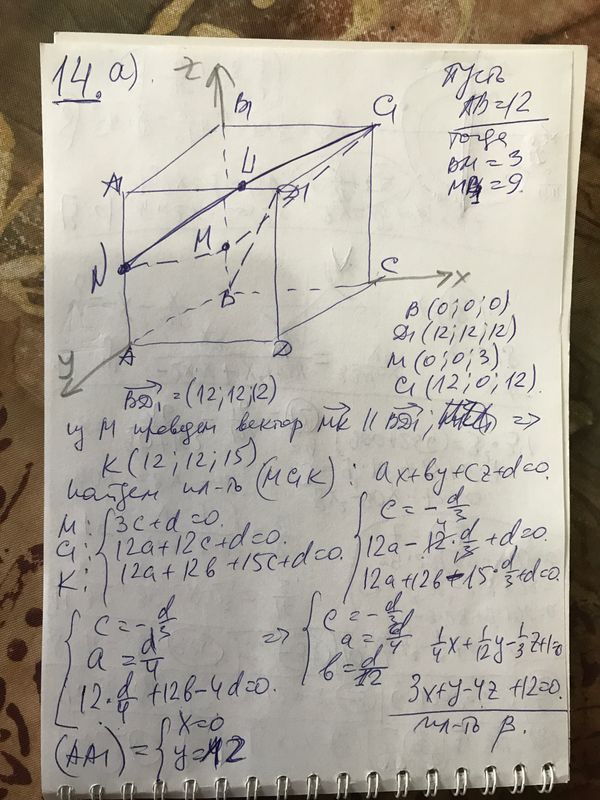 14. а)
Пусть
AB=12
тогда
BM=3
MB1=9.
z
B1
C1
L
A1
D1
M
N
C
x
B
y
A
D
B(0;0;0)
D1(12;12;12)
M(0;0;3)
C1(12;0;12)
BD1=(12;12;12)
из M проведем вектор MK || BD1; =>
K(12;12;15)
найдем пл-ть (MC1K): ax+by+cz+d=0.
M: 3c+d=0.
C1: 12a+12c+d=0.
K: 12a+12b+15c+d=0.
c=-d/3
12a-12·d/3+d=0.
12a+12b-15·d/3+d=0.
c=-d/3
a=d/4
12·d/4+12b-4d=0.
=>
c=-d/3
a=d/4
b=d/12
1/4x+1/12y-1/3z+1=0
3x+y-4z+12=0.
пл-ть β.
(AA1)= x=0
y=12